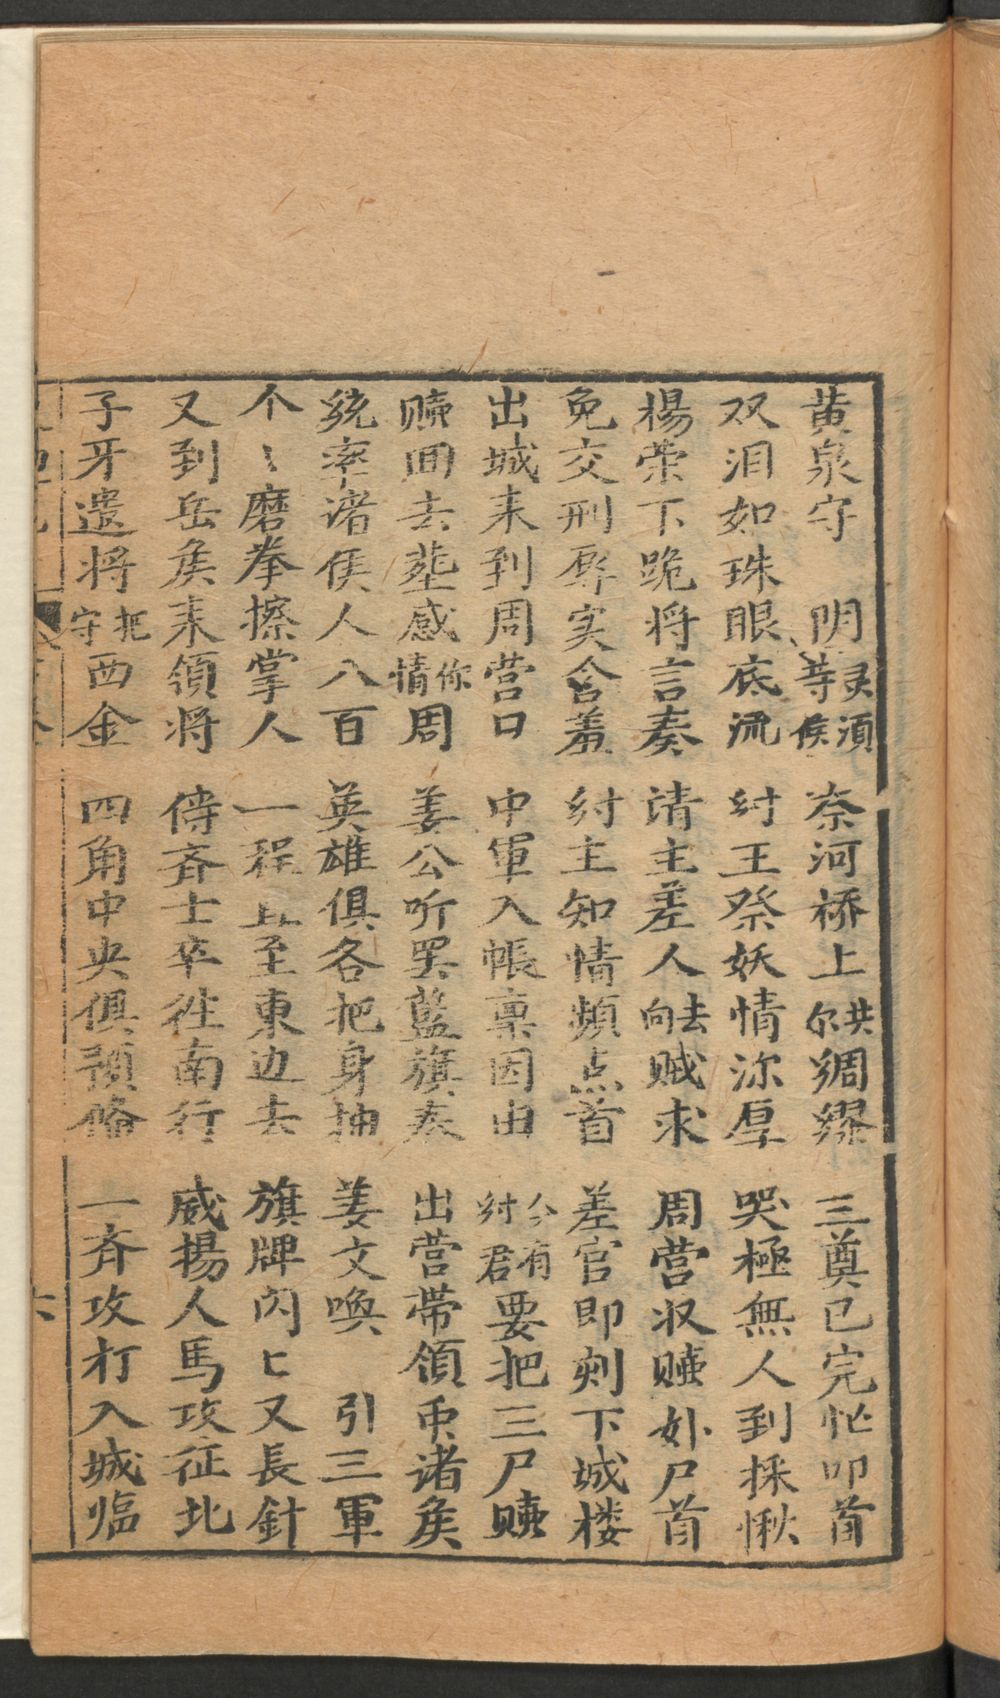 黄泉守阴灵等须候 奈河桥上共尔绸缪 三奠已完忙叩首
双泪如珠眼底流 纣王祭妖情深厚 哭極無人到採愀
楊荣下跪将言奏 请主差人去向贼求 周营収赎妖尸首
免交刑辱实含羞 纣主知情頻点首 差官即刻下城楼
出城来到周营口 中軍入帳禀因由 今有纣君要把三尸赎
赎回去塟感你情周 姜公听罢藍旗奏 出营带領众诸矦
统率诸侯人八百 英雄俱各把身抽 姜文喚引三軍
个〻磨拳擦掌人 一程直至東边去 旗牌闪匕又長針
又到岳矦来領将 侍斉士卒徃南行 威揚人馬攻征北
子牙遣将把守西金 四角中央俱預俻 一斉攻打入城临
六